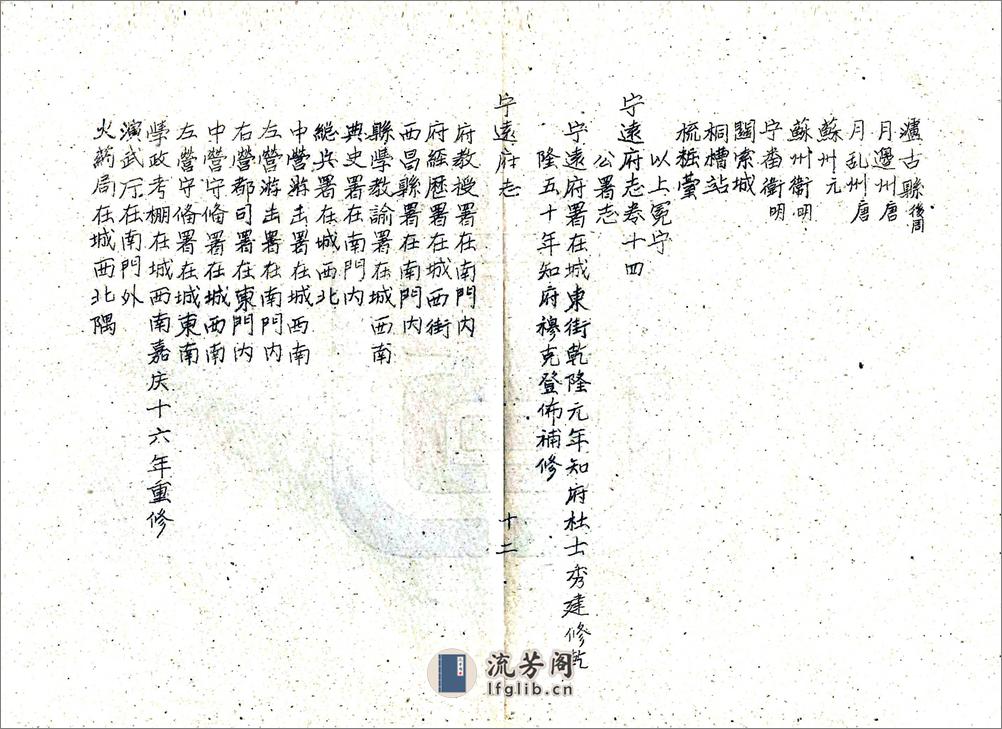 瀘古縣後周
月邊州唐
月乱州唐
蘇州元
蘇州衛明
宁畨衛明
関索城
桐槽站
梳粧䑓
以上冕宁
宁遠府志卷十四
公署志
宁遠府署在城東街乾隆元年知府杜士秀建修乾
隆五十年知府穆克登佈補修
宁遠府志 十二
府教授署在南門内
府経歷署在城西街
西昌縣署在南門内
縣學教諭署在城西南
典史署在南門内
総兵署在城西北
中營游击署在城西南
左營游击署在南門内
右營都司署在東門内
中營守俻署在城西南
左營守俻署在城東南
學政考棚在城西南嘉庆十六年重修
演武厅在南門外
火葯局在城西北隅
流芳阁
lfglib.cn